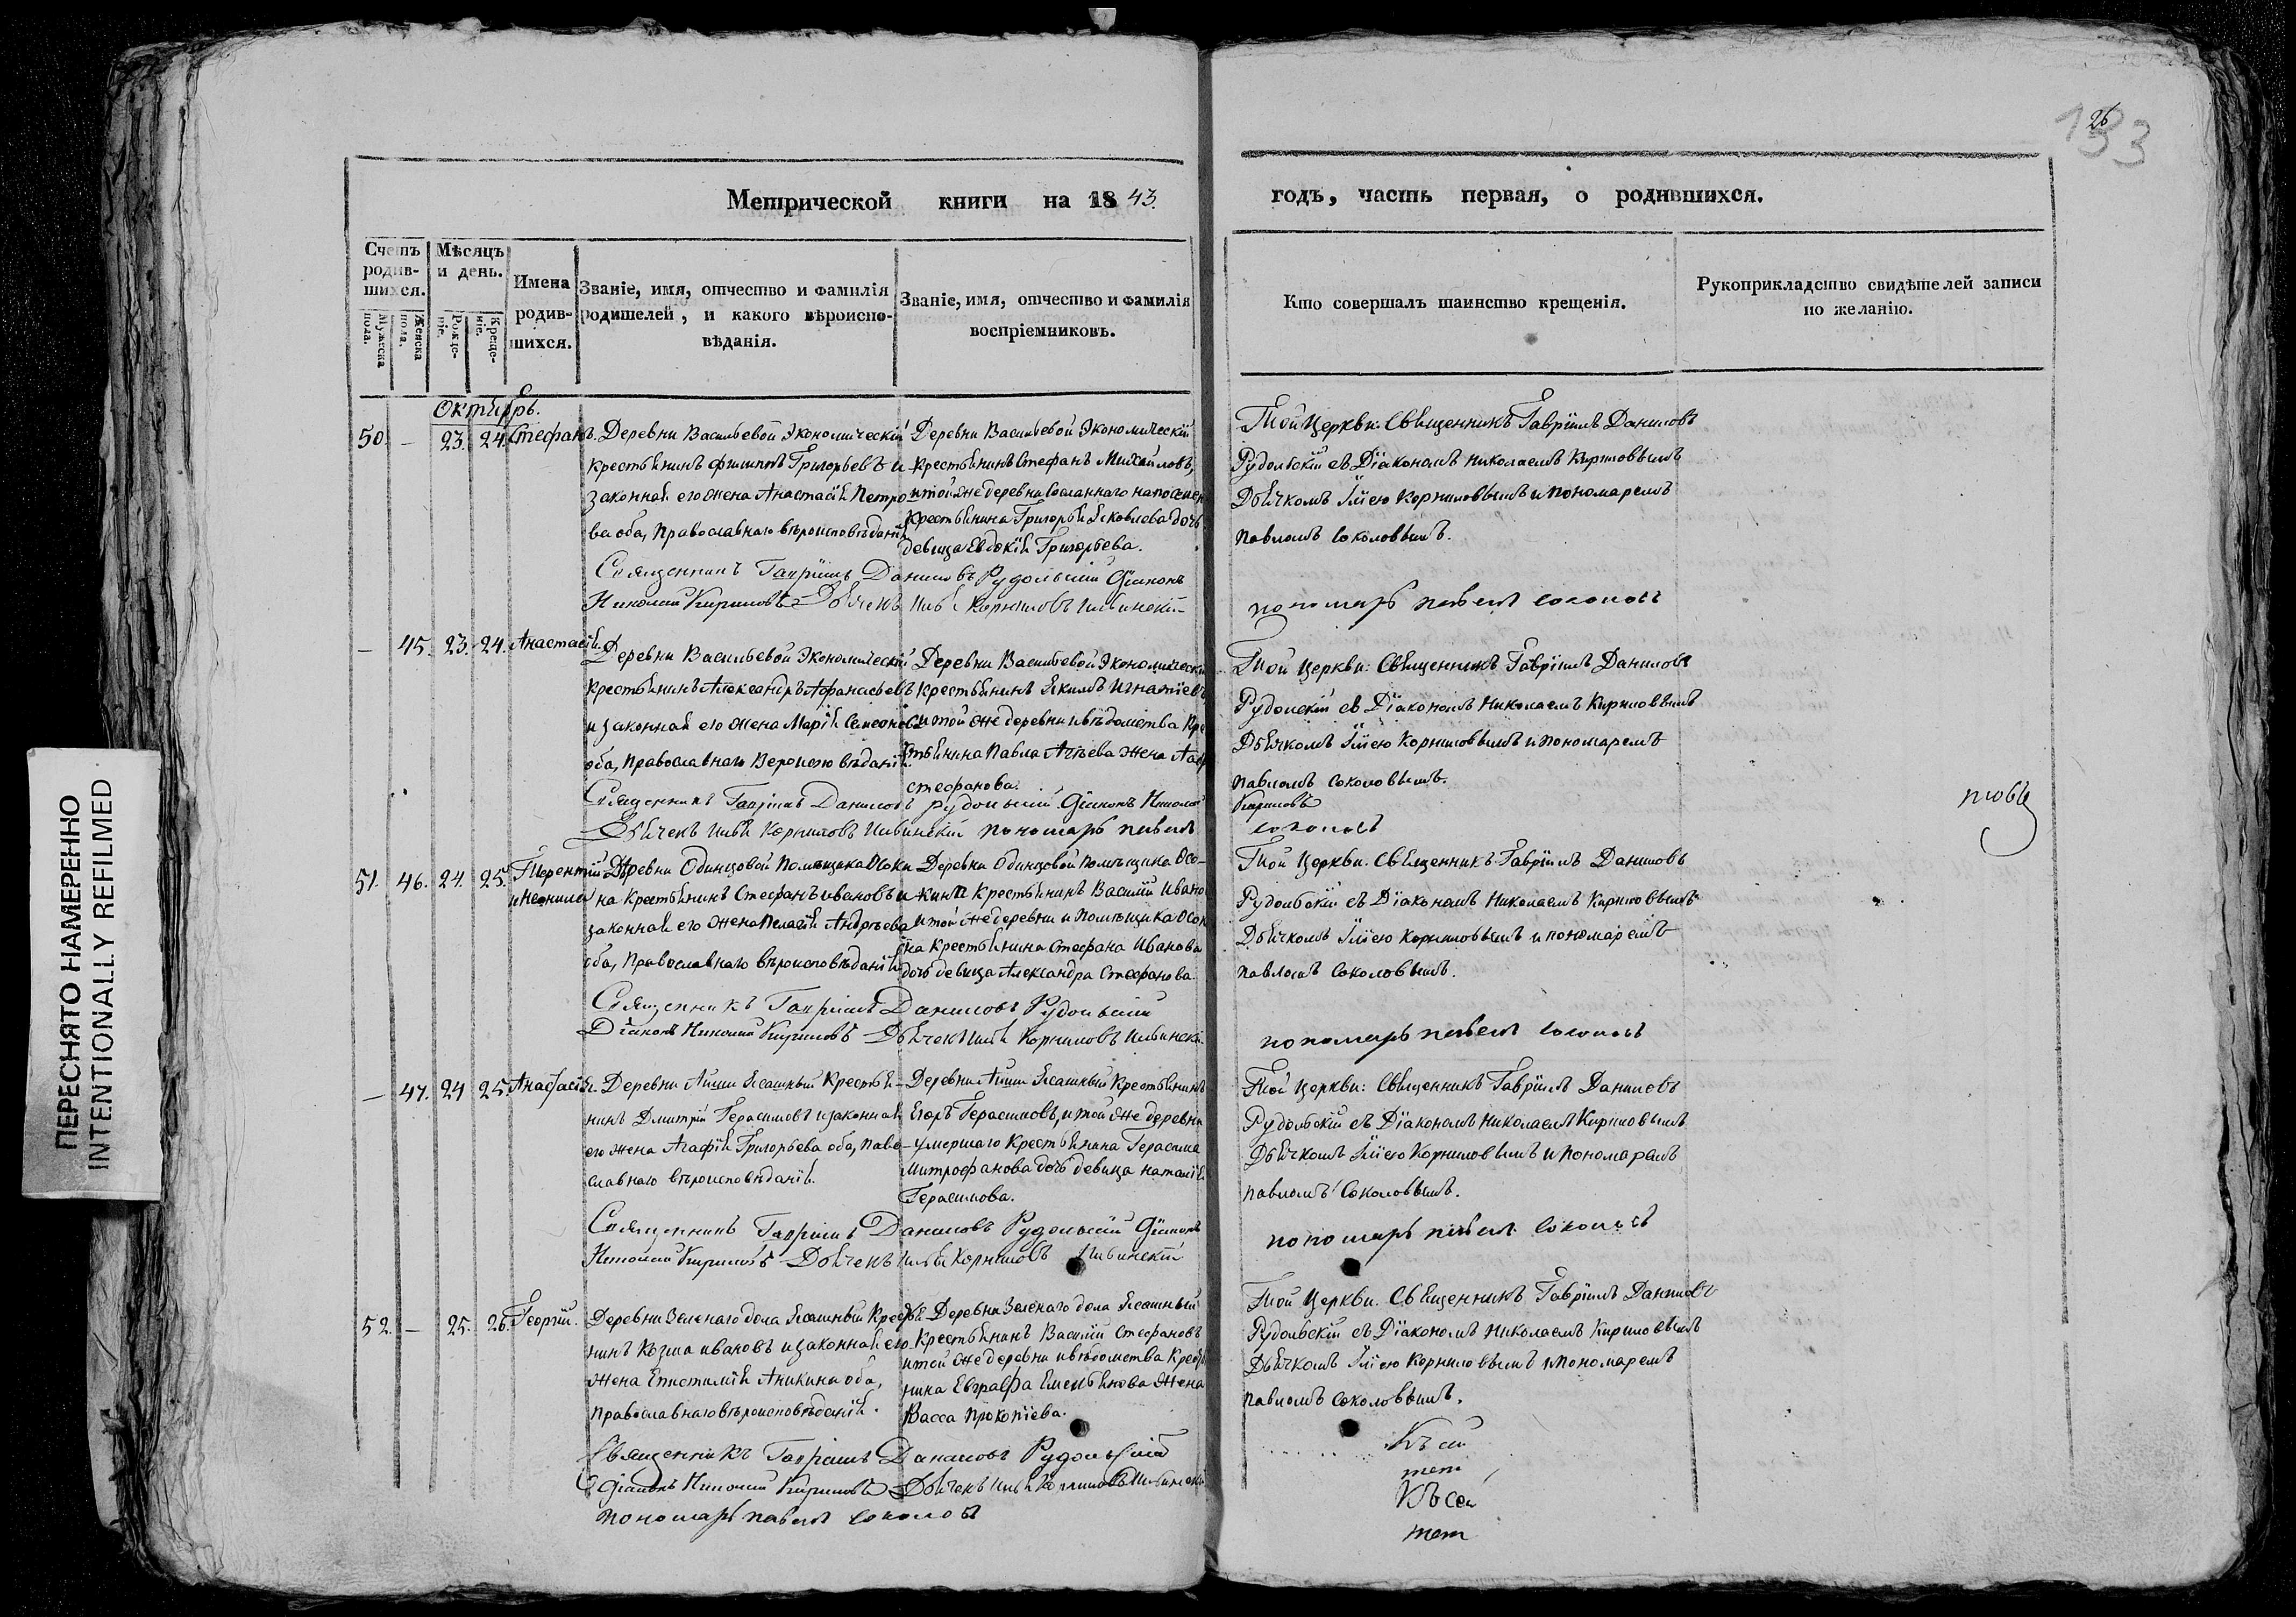 26
133
Метрической книги на 1843.
годъ, часть первая, о родившихся.
Счетъ родившихся.
Мужеска пола.
Женска пола.
Мѣсяцъ и день.
Рожденіе.
Крещеніе.
Имена родившихся.
Званіе, имя, отчество и фамилія родителей, и какого вѣроисповѣданія.
Званіе, имя, отчество и фамилія воспріемниковъ.
Кто совершалъ таинство крещенія.
Рукоприкладство свидѣтелей записи по желанію.
Октябрь.
50. — 23. 24. Стефанъ.
Деревни Васильевой Экономическій
крестьянинъ Филиппъ Григорьевъ и
законная его жена Анастасія Петро
ва оба, Православнаго вѣроисповѣданія
Деревни Васильевой Экономическій
крестьянинъ Стефанъ Михайловъ,
и той же деревни сосланнаго на поселен
Крестьянина Григорья Яковлева дочь
девица Евдокія Григорьева.
Той Церкви: Священникъ Гавріилъ Даниловъ
Рудольскій съ Діакономъ Николаемъ Кириловымъ
Дьячкомъ Ильею Корниловымъ и пономаремъ
павломъ Соколовымъ.
Священникъ Гавріилъ Даниловъ Рудольскій Діаконъ
Николай Кириловъ Дьячекъ Илья Корниловъ Ильинскій
пономарь павелъ соколовъ
— 45. 23. 24. Анастасія.
Деревни Васильевой Экономическій
крестьянинъ Александръ Афанасьевъ
и законная его жена Марія Семеонова
оба, Православнаго Вероисповѣданія.
Деревни Васильевой Экономически
крестьянинъ Якимъ Игнатіевъ
и той же деревни и вѣдомства Кре
стьянина Павла Агѣева жена
стефанова.
Той Церкви: Священникъ Гавріилъ Даниловъ
Рудольскій съ Діакономъ Николаемъ Кириловымъ
Дьячкомъ Ильею Корниловымъ и пономаремъ
павломъ соколовымъ.
Священникъ Гавріилъ Даниловъ Рудольскій Діаконъ Николай Кириловъ
Дьячекъ Илья Корниловъ Ильинскій пономарь павелъ соколовъ
51. 46. 24. 25. Терентій и Неонила
Деревни Одинцовой Помѣщика Осоки
на Крестьянинъ Стефанъ Ивановъ и
законная его жена Пелагія Андрѣева
оба, Православнаго вѣроисповѣданія
Деревни Одинцовой помѣщика Осо-
кина Крестьянинъ Василій Ивано
и той же деревни и помѣщика Осок
на Крестьянина Стефана Иванова
дочь девица Александра Стефанова.
Той Церкви: Священникъ Гавріилъ Даниловъ
Рудольскій съ Діакономъ Николаемъ Кириловымъ
Дьячкомъ Ильею Корниловымъ и пономаремъ
павломъ Соколовымъ.
Священникъ Гавріилъ Даниловъ Рудольскій
Діаконъ Николай Кириловъ Дьячекъ Илья Корниловъ Ильинскі
пономарь павелъ соколовъ
— 47. 24 25. Анастасія.
Деревни Айши Ясашный Крестья-
нинъ Дмитрій Герасимовъ и законная
его жена Агафія Григорьева оба, Паво-
славнаго вѣроисповѣданія.
Деревни Айши Ясашный Крестьянинъ
Егоръ Герасимовъ, и той же деревни
умершаго Крестьянина Герасима
Митрофанова дочь девица наталія
Герасимова.
Той Церкви: Священникъ Гавріилъ Даниловъ
Рудольскій съ Діакономъ Николаемъ Кириловымъ
Дьячкомъ Ильею Корниловымъ и пономаремъ
павломъ Соколовымъ.
Священникъ Гавріилъ Даниловъ Рудольскій Діаконъ
Николай Кириловъ Дьячекъ Илья Корниловъ Ильинскій
пономарь павелъ соколовъ
52. — 25. 26. Георгій.
Деревни Зеленаго дола Ясашный Крестья
нинъ Козма ивановъ и законная его
жена Епистимія Аникина оба,
православнаго вѣроисповѣданія.
Деревни Зеленаго дола Ясашный
Крестьянинъ Василій Стефановъ
и той же деревни и вѣдомства Крестья
нина Евграфа Емельянова жена
Васса Прокопіева.
Той Церкви: Священникъ Гавріилъ Даниловъ
Рудольскій съ Діакономъ Николаемъ Кириловымъ
Дьячкомъ Ильею Корниловымъ и пономаремъ
павломъ соколовымъ.
Священникъ Гавріилъ Даниловъ Рудольскій
Діаконъ Николай Кириловъ Дьячекъ Илья Корниловъ Ильинскі
пономарь павелъ соколовъ
Къ сей
тет
Къ сей
тет
ПЕРЕСНЯТО НАМЕРЕННО
INTENTIONALLY REFILMED